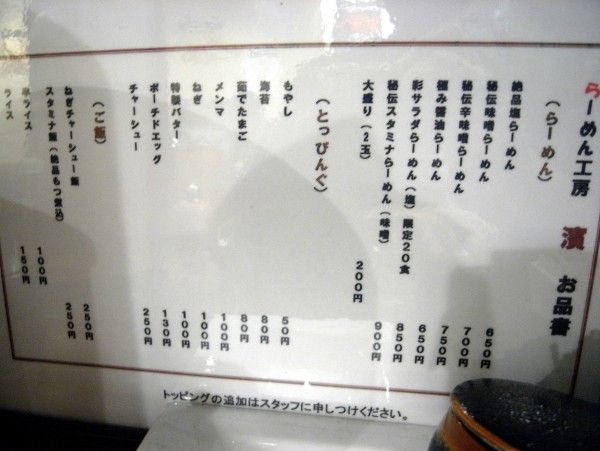 らーめん工房 濱 お品書
(らーめん)
絶品塩らーめん 650円
秘伝味噌らーめん 700円
秘伝辛味噌らーめん 750円
極み醤油らーめん 650円
彩サラダらーめん(塩)限定20食 850円
秘伝スタミナらーめん(味噌) 900円
大盛り(2玉) 200円
(とっぴんぐ)
もやし 50円
海苔 80円
茹でたまご 80円
メンマ 100円
ねぎ 100円
特製バター 100円
ポーチドエッグ 130円
チャーシュー 250円
(ご飯)
ねぎチャーシュー飯 250円
スタミナ飯(絶品もつ煮込) 250円
半ライス 100円
ライス 150円
トッピングの追加はスタッフに申しつけください。